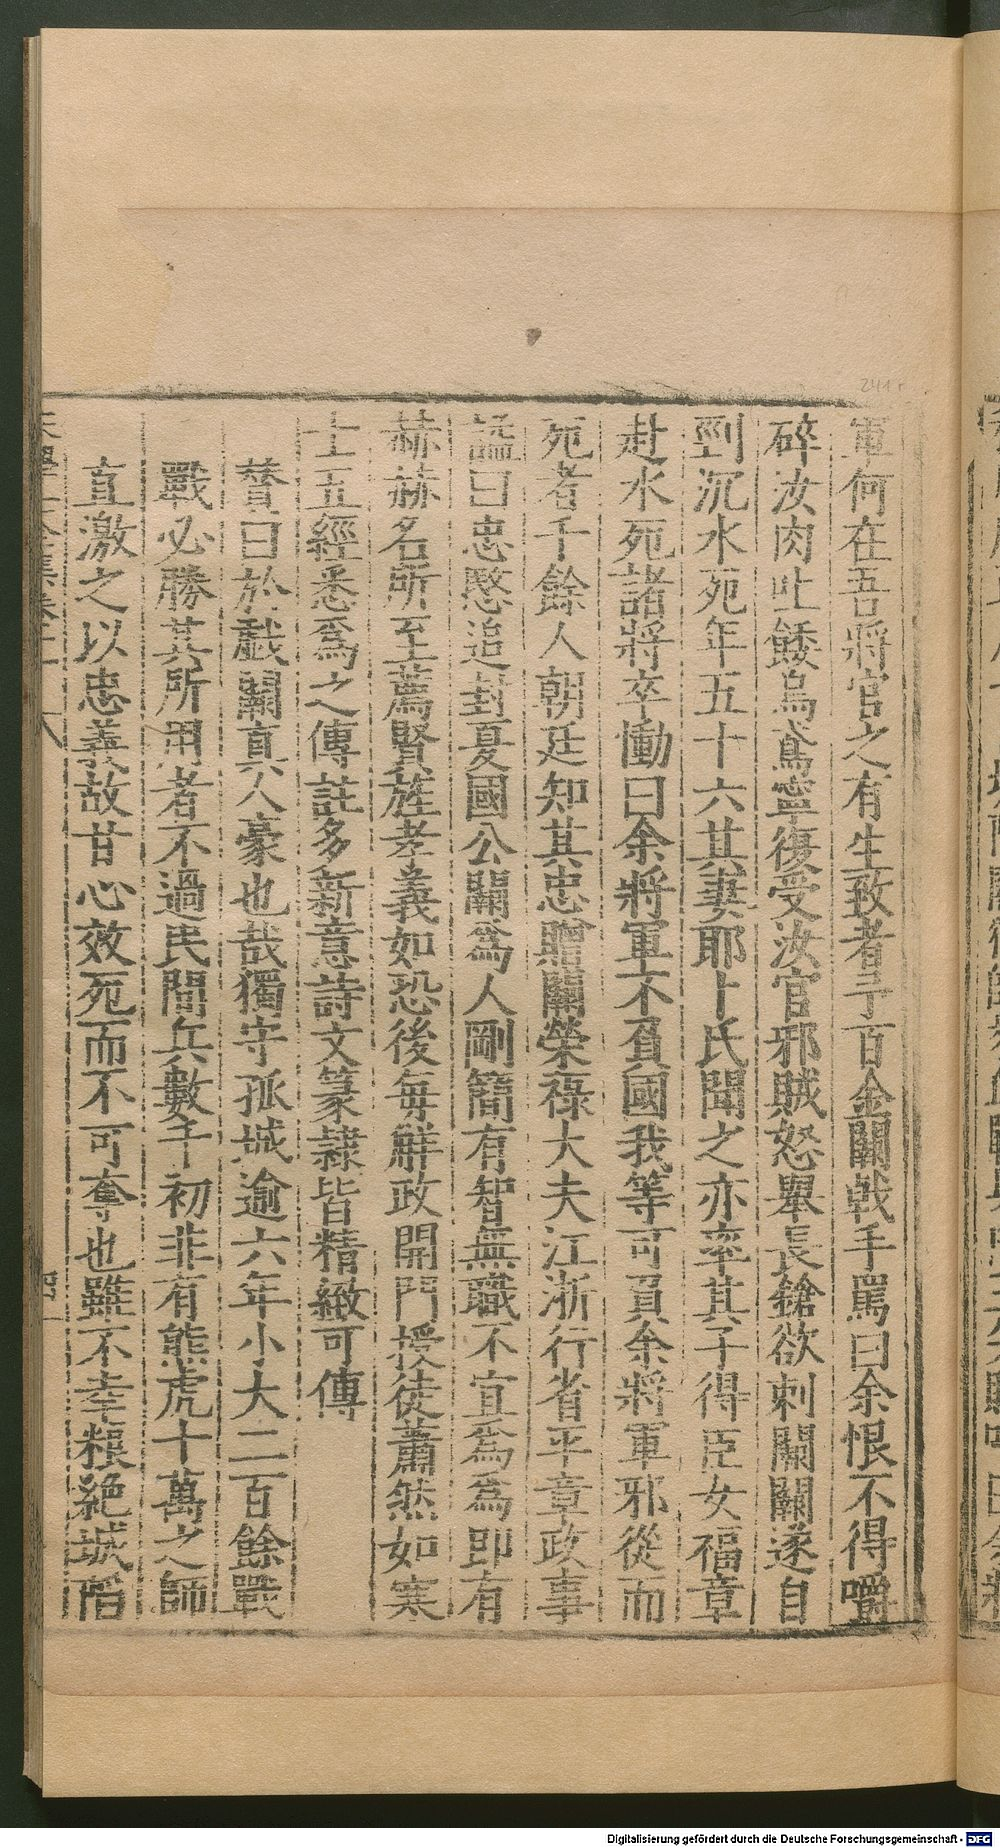 軍何在吾將官之有生致者予百金闕戟手罵曰余恨不得嚼
碎汝肉吐餧烏鳶寧復受汝官邪賊怒舉長鎗欲刺闕闕遂自
剄沉水死年五十六其妻耶卜氏聞之亦率其子得臣女福章
赴水死諸將卒慟曰余將軍不負國我等可負余將軍邪從而
死者千餘人朝廷知其忠贈闕榮祿大夫江浙行省平章政事
謚曰忠愍追封夏國公闕爲人剛簡有智無職不宜爲爲即有
赫赫名所至薦賢旌孝義如恐後每解政開門授徒蕭然如寒
士五經悉爲之傳註多新意詩文篆隷皆精緻可傳
贊曰於戲闕真人豪也哉獨守孤城逾六年小大二百餘戰
戰必勝其所用者不過民間兵數千初非有熊虎十萬之師
直激之以忠義故甘心效死而不可奪也雖不幸糧絕城陷
學士全集卷
Digitalisierung gefördert durch die Deutsche Forschungsgemeinschaft - DFG